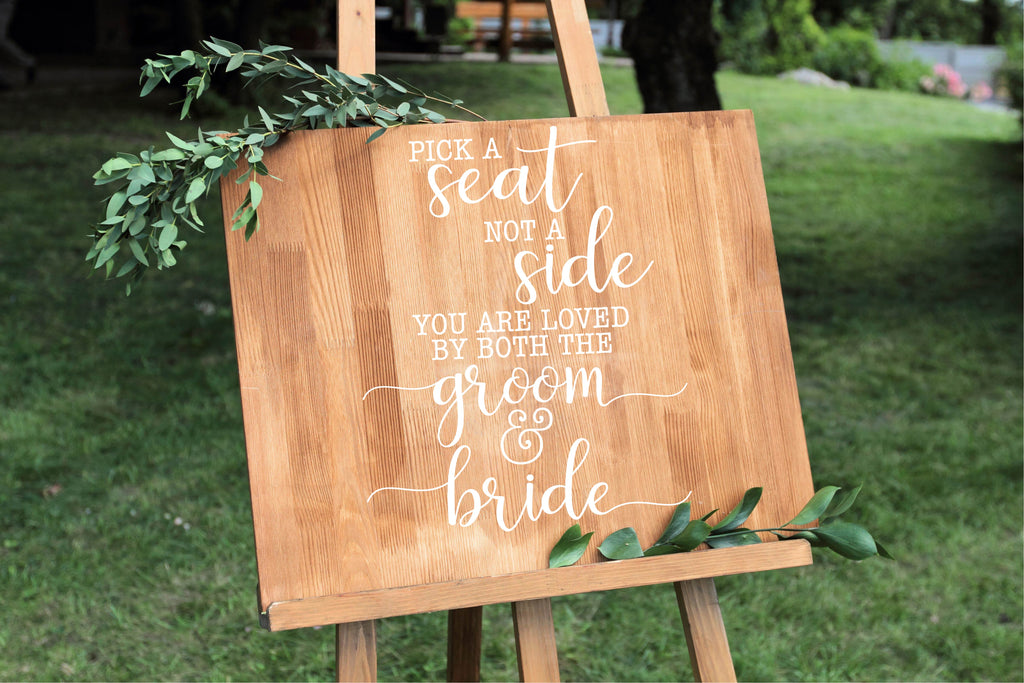 PICK A
seat
NOT A
side
YOU ARE LOVED
BY BOTH THE
groom
&
bride